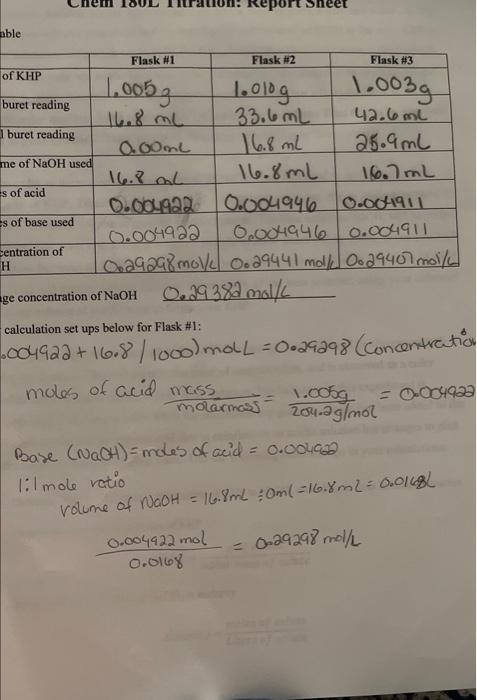 Chem 180L Titration: Report Sheet
able
Flask #1 Flask #2 Flask #3
of KHP 1.005g 1.010g 1.003g
buret reading 16.8 mL 33.6 mL 42.6 mL
l buret reading 0.00mL 16.8 mL 25.9mL
me of NaOH used 16.8 mL 16.8mL 16.7mL
s of acid 0.004922 0.004946 0.004911
es of base used 0.004922 0.004946 0.004911
centration of
H 0.29298mol/L 0.29441 mol/L 0.29407 mol/L
age concentration of NaOH 0.29382 mol/L
calculation set ups below for Flask #1:
.004922 + 16.8 / 1000) molL = 0.29298 (Concentration
moles of acid mass / molarmass = 1.005g / 204.2g/mol = 0.004922
Base (NaOH) = moles of acid = 0.004922
1:1 mole ratio
volume of NaOH = 16.8mL ÷ 0ml = 16.8mL = 0.0168L
0.004922 mol / 0.0168 = 0.29298 mol/L